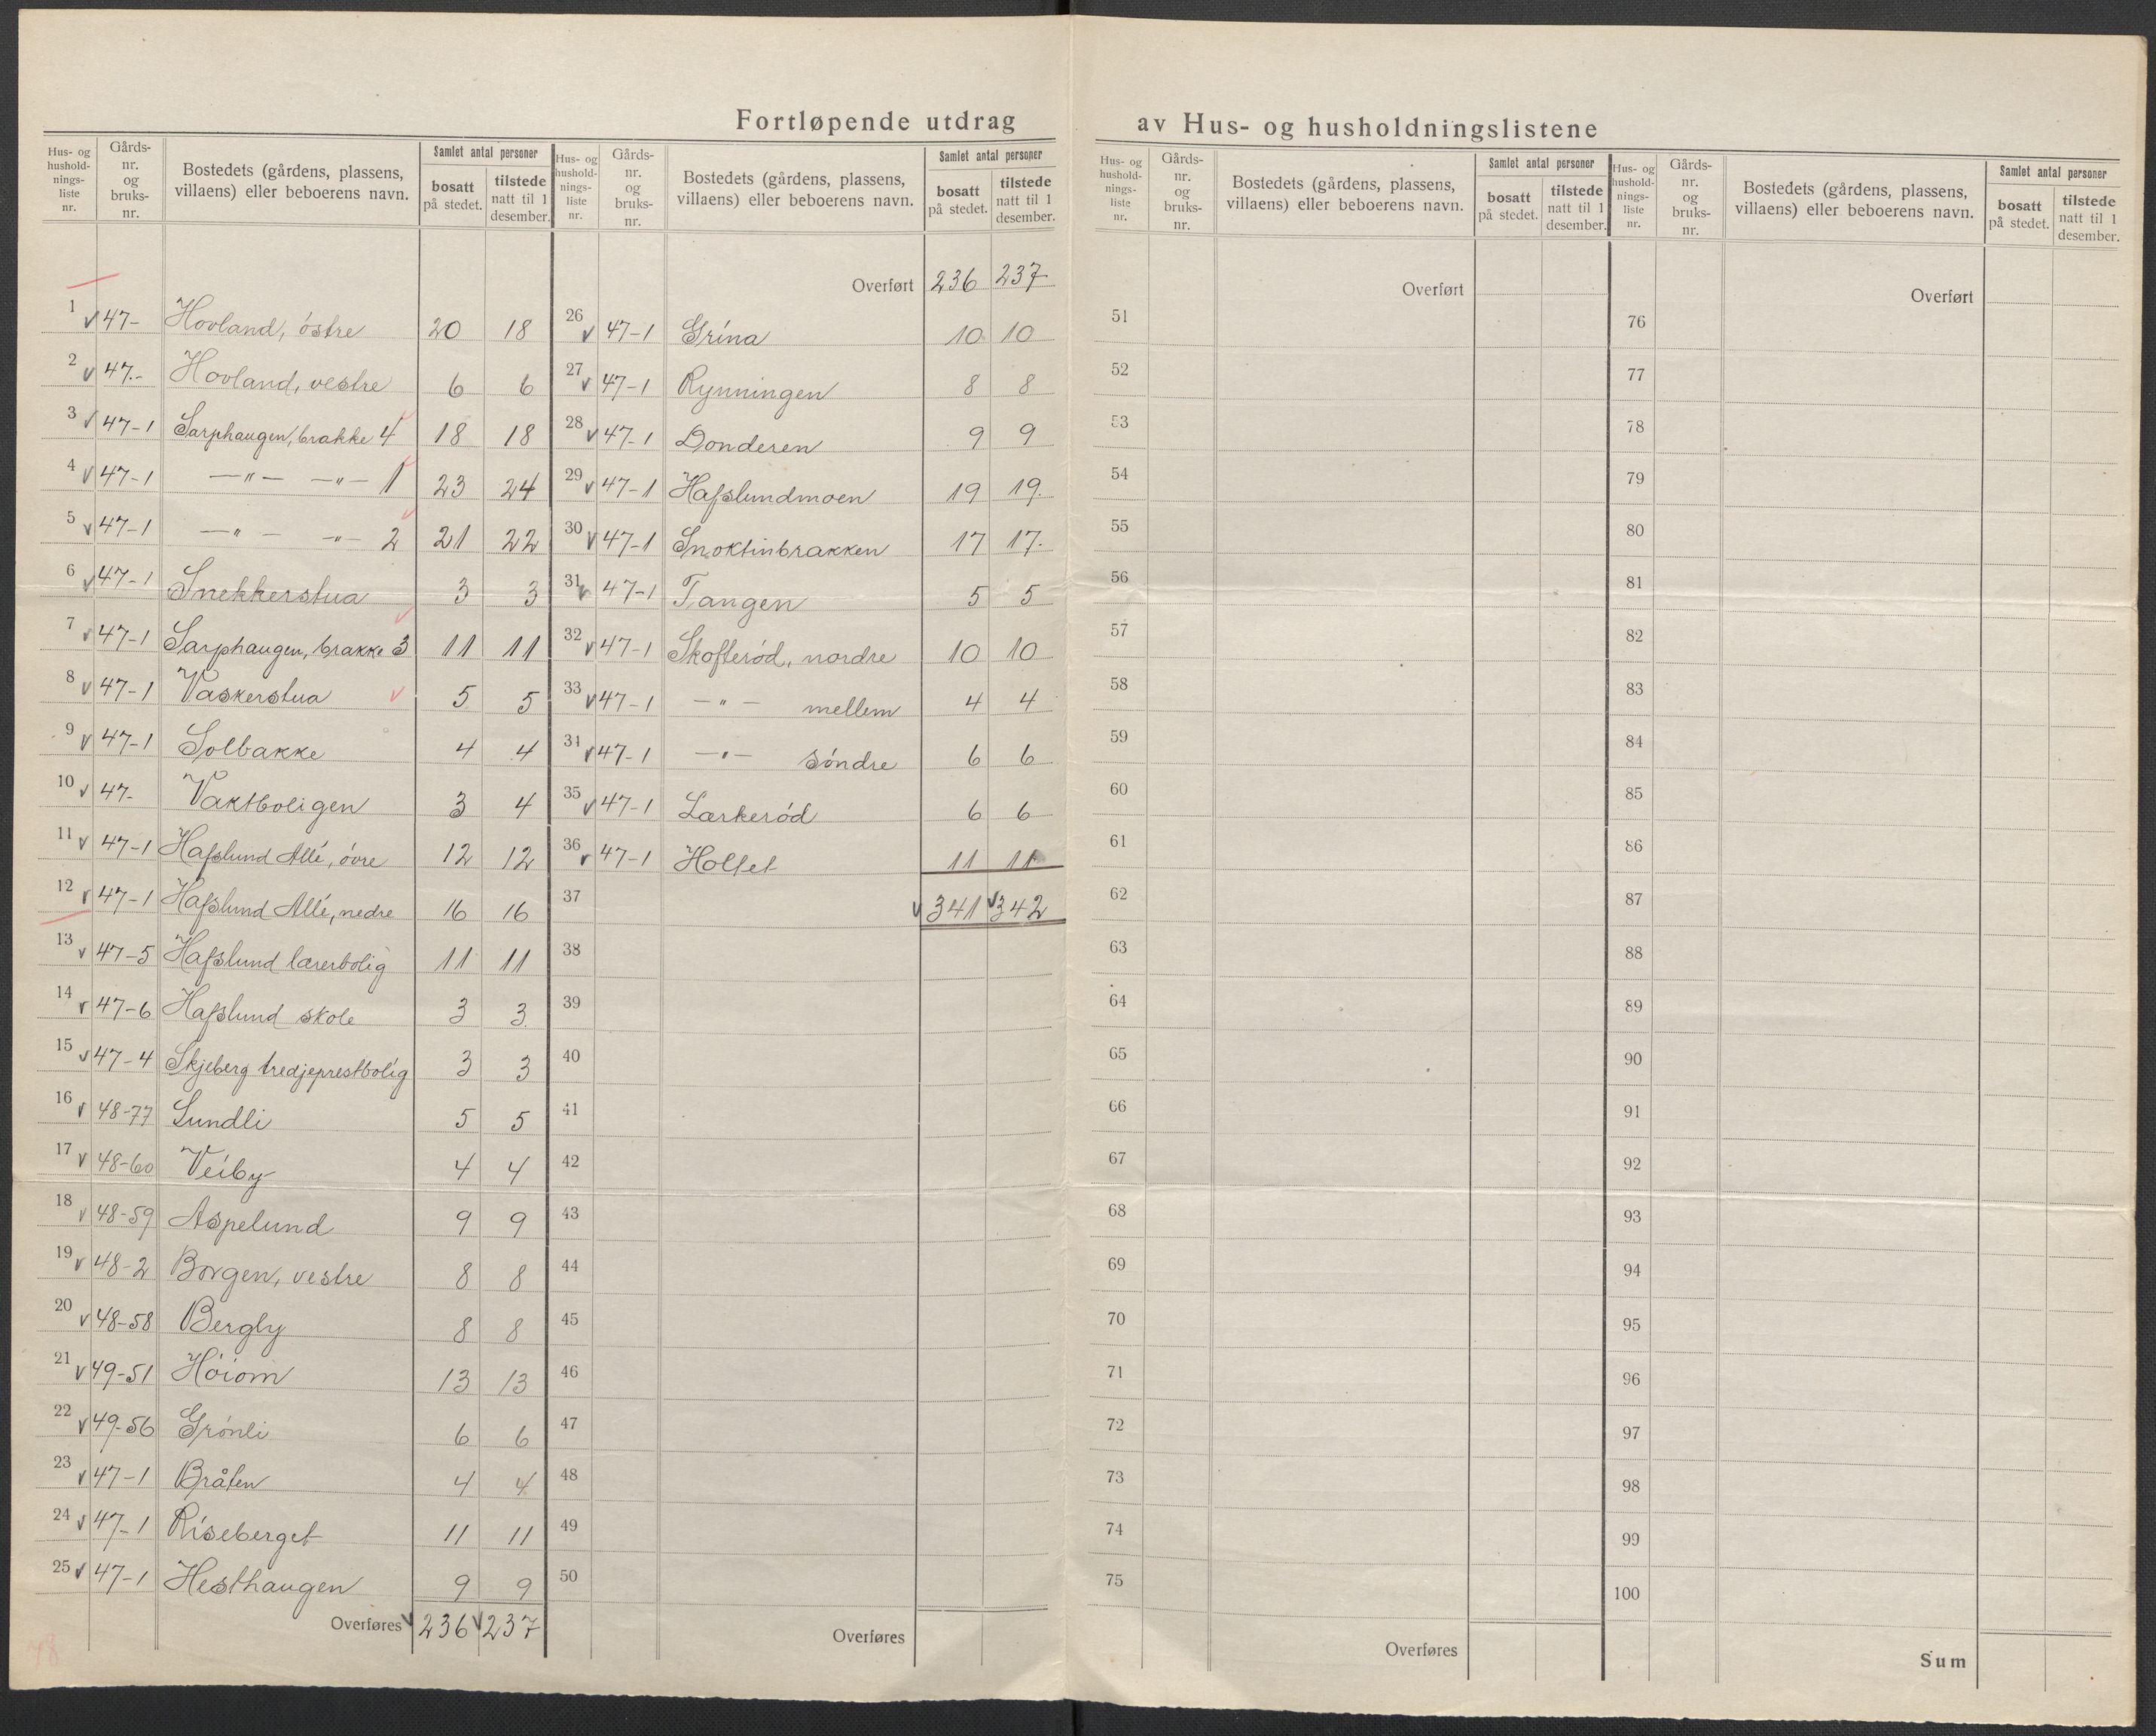 Fortløpende utdrag av Hus- og husholdningslistene
Hus- og hushold-nings-liste nr. Gårds-nr. og bruks-nr. Bostedets (gårdens, plassens, villaens) eller beboerens navn. Samlet antal personer bosatt på stedet. tilstede natt til 1 desember.
1 47- Hovland, östre 20 18
2 47.- Hovland, vestre 6 6
3 47-1 Sarphaugen, brakke 4 18 18
4 47-1 —"— —"— 1 23 24
5 47-1 —"— —"— 2 21 22
6 47-1 Snekkerstua 3 3
7 47-1 Sarphaugen, brakke 3 11 11
8 47-1 Vaskerstua 5 5
9 47-1 Solbakke 4 4
10 47- Vaktboligen 3 4
11 47-1 Hafslund Allé, óvre 12 12
12 47-1 Hafslund Allé, nedre 16 16
13 47-5 Hafslund lærerbolig 11 11
14 47-6 Hafslund skole 3 3
15 47-4 Skjeberg tredjeprestbolig 3 3
16 48-77 Lundli 5 5
17 48-60 Veiby 4 4
18 48-59 Aspelund 9 9
19 48-2 Borgen, vestre 8 8
20 48-58 Bergly 8 8
21 49-51 Hóiom 13 13
22 49-56 Grónli 6 6
23 47-1 Bråten 4 4
24 47-1 Riseberget 11 11
25 47-1 Hesthaugen 9 9
Overføres 236 237
78
Hus- og hushold-nings-liste nr. Gårds-nr. og bruks-nr. Bostedets (gårdens, plassens, villaens) eller beboerens navn. Samlet antal personer bosatt på stedet. tilstede natt til 1 desember.
Overført 236 237
26 47-1 Grina 10 10
27 47-1 Rynningen 8 8
28 47-1 Donderen 9 9
29 47-1 Hafslundmoen 19 19.
30 47-1 Snoktinbrakken 17 17.
31 47-1 Tangen 5 5
32 47-1 Skofteród, nordre 10 10
33 47-1 —"— mellem 4 4
34 47-1 —"— söndre 6 6
35 47-1 Lærkeród 6 6
36 47-1 Holtet 11 11
37 341 342
38
39
40
41
42
43
44
45
46
47
48
49
50
Overføres
Hus- og hushold-nings-liste nr. Gårds-nr. og bruks-nr. Bostedets (gårdens, plassens, villaens) eller beboerens navn. Samlet antal personer bosatt på stedet. tilstede natt til 1 desember.
Overført
51
52
53
54
55
56
57
58
59
60
61
62
63
64
65
66
67
68
69
70
71
72
73
74
75
Overføres
Hus- og hushold-nings-liste nr. Gårds-nr. og bruks-nr. Bostedets (gårdens, plassens, villaens) eller beboerens navn. Samlet antal personer bosatt på stedet. tilstede natt til 1 desember.
Overført
76
77
78
79
80
81
82
83
84
85
86
87
88
89
90
91
92
93
94
95
96
97
98
99
100
Sum